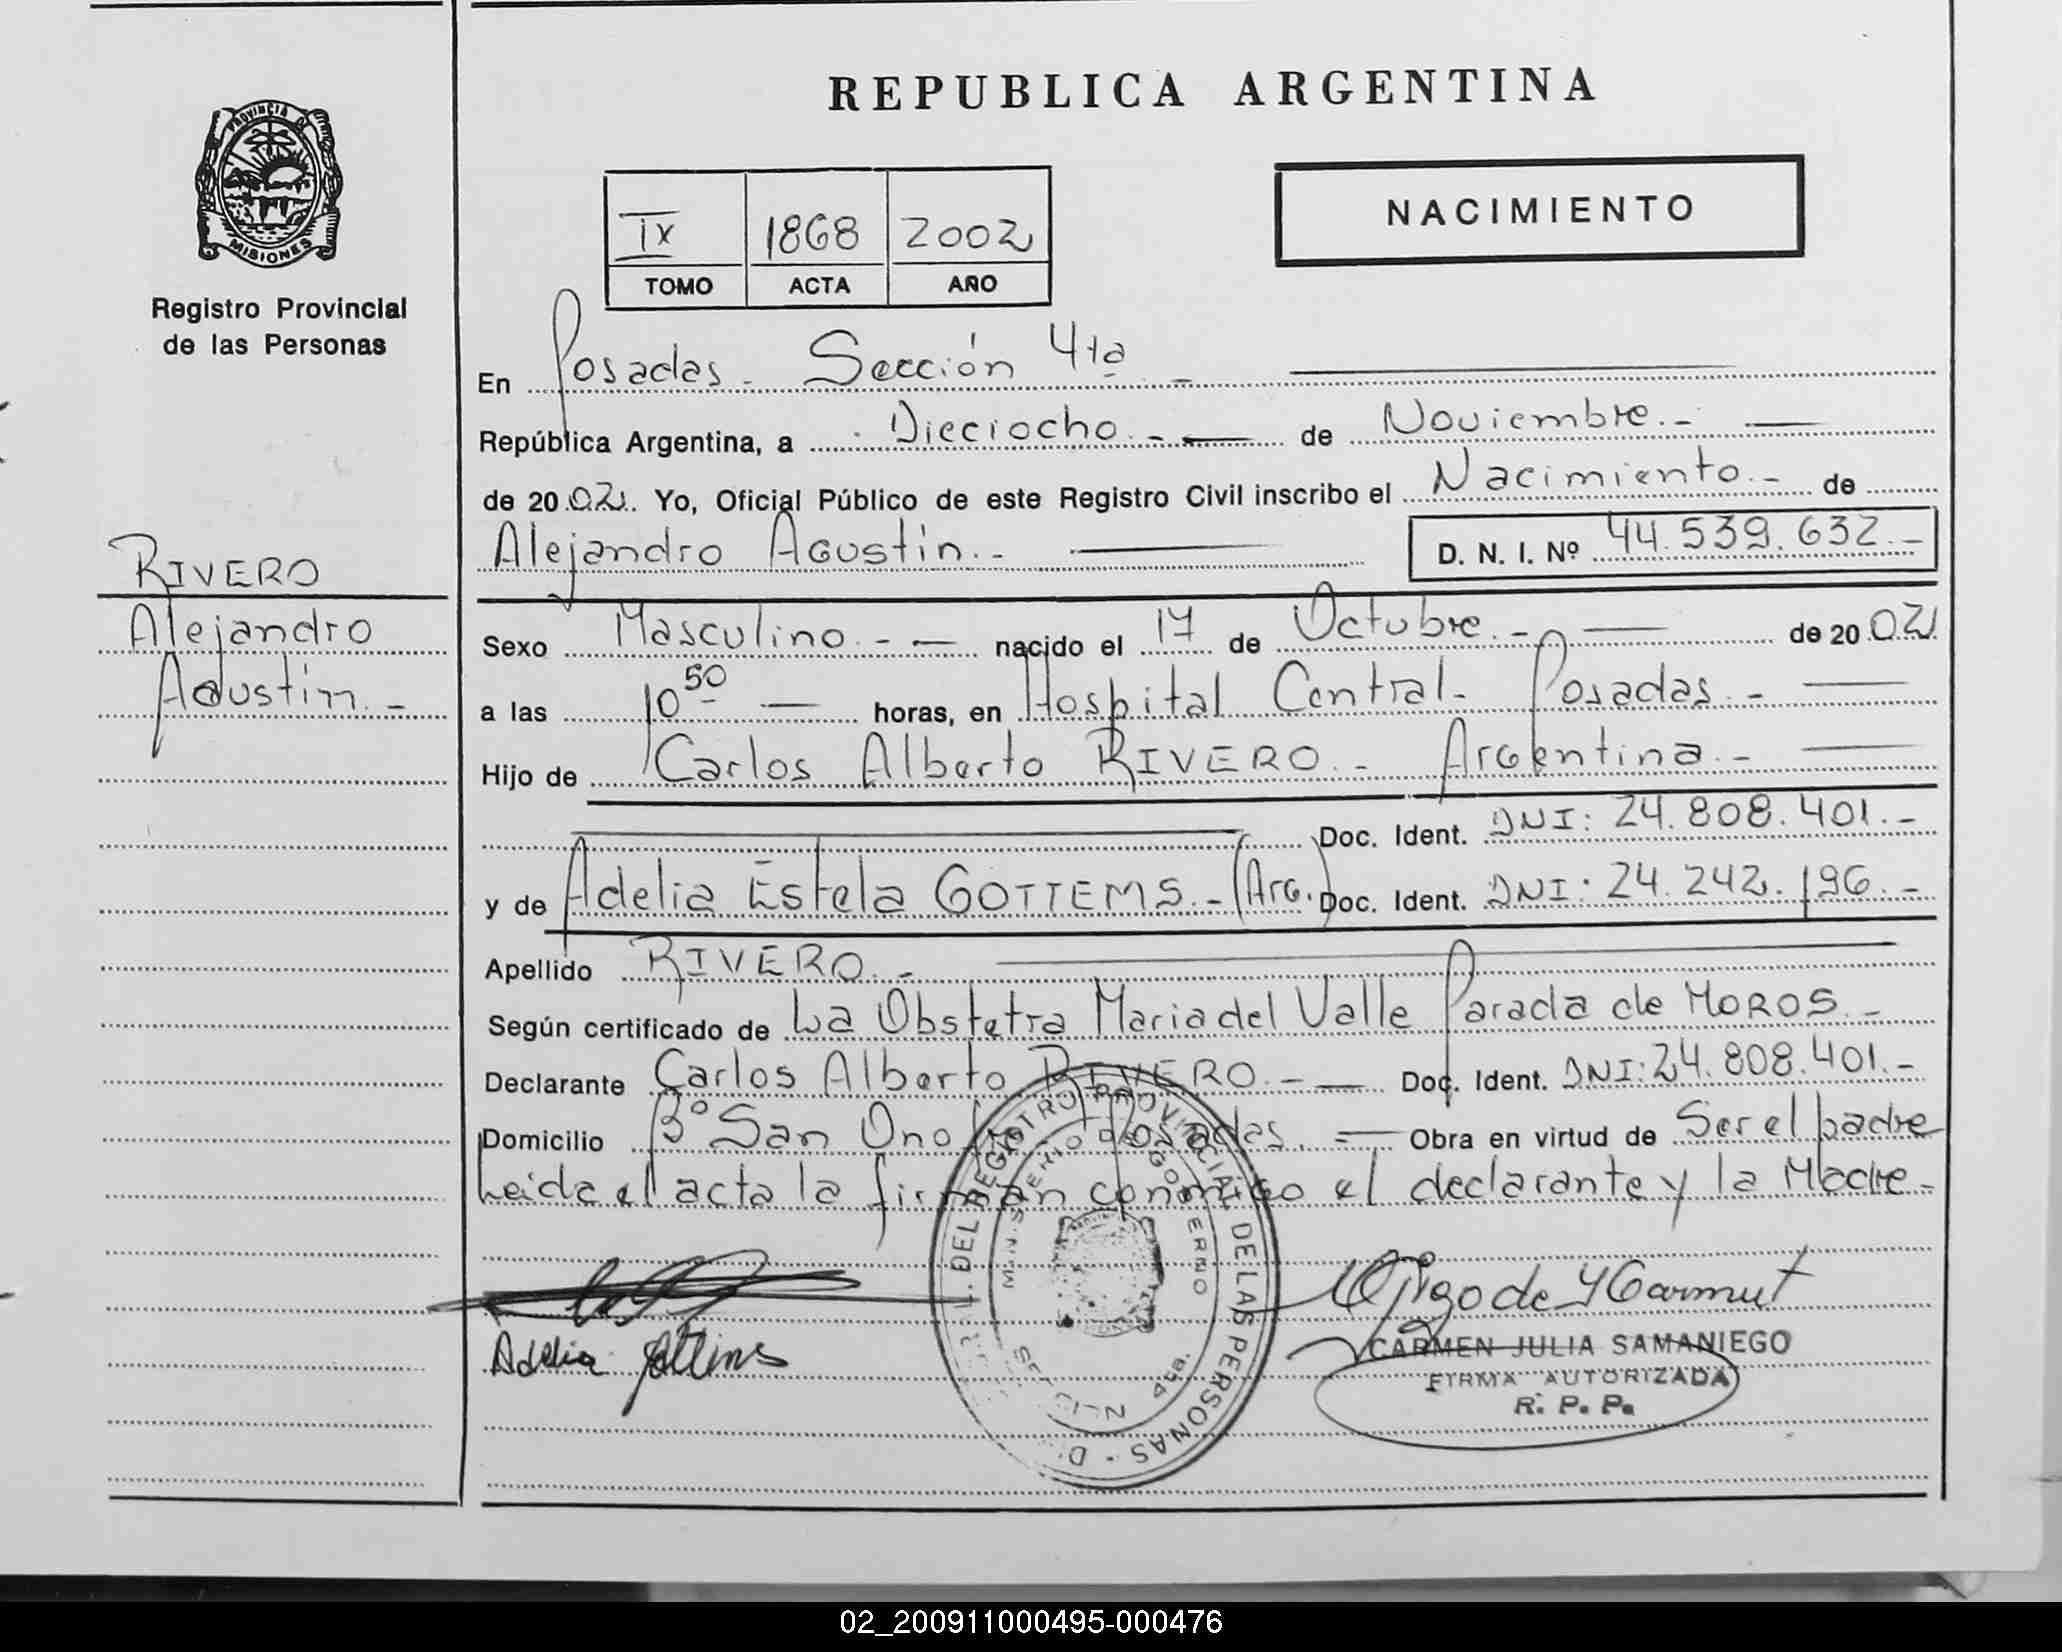 REPUBLICA ARGENTINA
PROVINCIA DE
MISIONES
Registro Provincial
de las Personas
IX 1868 2002
TOMO ACTA AÑO
NACIMIENTO
En Posadas. Sección 4ta. -
República Argentina, a Dieciocho. - de Noviembre. -
de 20 02. Yo, Oficial Público de este Registro Civil inscribo el Nacimiento. - de
Alejandro Agustín. - D. N. I. Nº 44.539.632. -
RIVERO
Alejandro
Agustín. -
Sexo Masculino. - nacido el 17 de Octubre. - de 20 02.
a las 10 50 horas, en Hospital Central - Posadas. -
Hijo de Carlos Alberto RIVERO. - Argentina. -
Doc. Ident. DNI: 24.808.401. -
y de Adelia Estela GOTTEMS. - (Arg.) Doc. Ident. DNI: 24.242.196. -
Apellido RIVERO. -
Según certificado de La Obstetra Maria del Valle Parada de MOROS. -
Declarante Carlos Alberto RIVERO. - Doc. Ident. DNI: 24.808.401. -
Domicilio Bº San Onof Posadas. - Obra en virtud de Ser el padre
Leida el acta la firman conmigo el declarante y la Madre -
REGISTRO PROVINCIAL DE LAS PERSONAS
MINISTERIO DE GOBIERNO
Adelia Gottems
CARMEN JULIA SAMANIEGO
FIRMA AUTORIZADA
R. P. P.
02_200911000495-000476